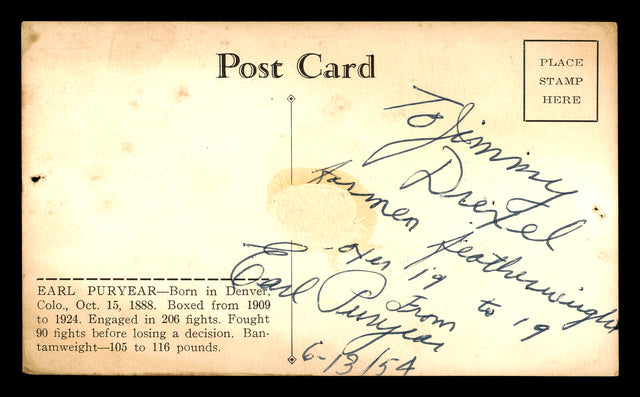 Post Card
PLACE
STAMP
HERE
To Jimmy
Drexel
featherweight
19 to 19
From
Earl Puryear
6-13/54
EARL PURYEAR—Born in Denver,
Colo., Oct. 15, 1888. Boxed from 1909
to 1924. Engaged in 206 fights. Fought
90 fights before losing a decision. Ban-
tamweight—105 to 116 pounds.